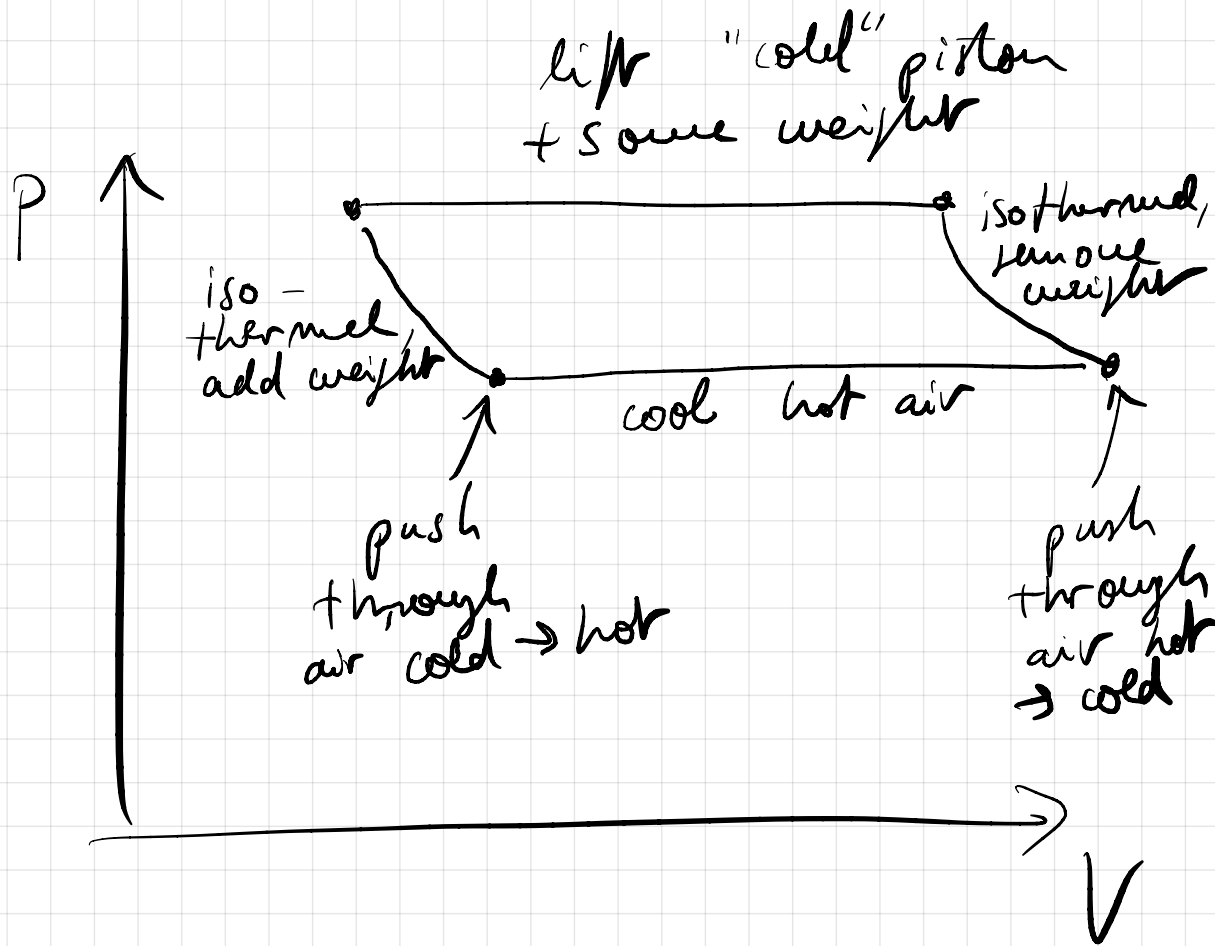 lift "cold" piston
+ some weight
P
isothermal,
remove
weight
iso-
thermal,
add weight
cool hot air
push
through
air cold → hot
push
through
air hot
→ cold
V